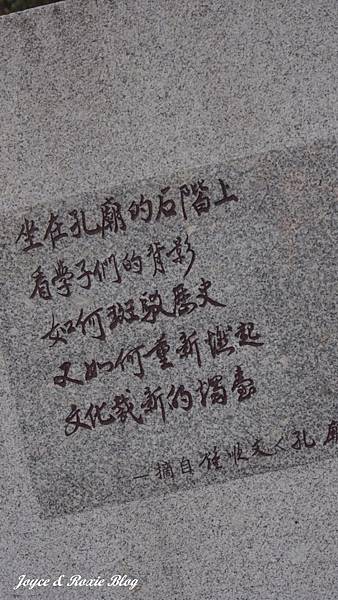 坐在孔廟的石階上
看学子們的背影
如何斑駁歷史
又如何重新燃起
文化裁新的燭臺
—摘自 < 孔廟
Joyce & Roxie Blog